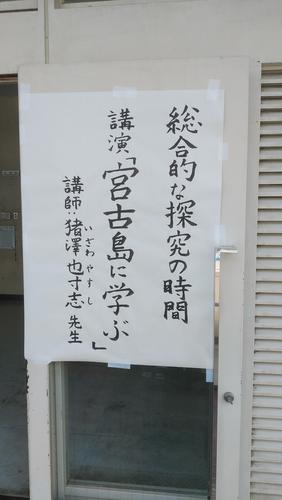 総合的な探究の時間
講演「宮古島に学ぶ」
講師:猪澤也寸志先生
いざわやすし